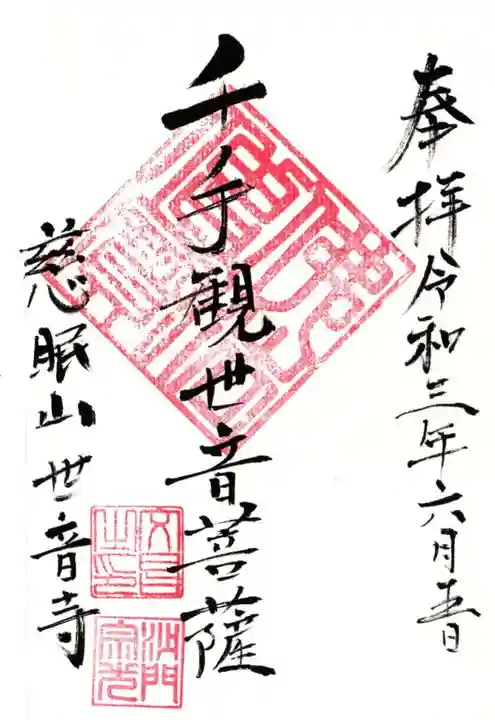 奉拝令和三年六月五日
千手観世音菩薩
慈眠山世音寺